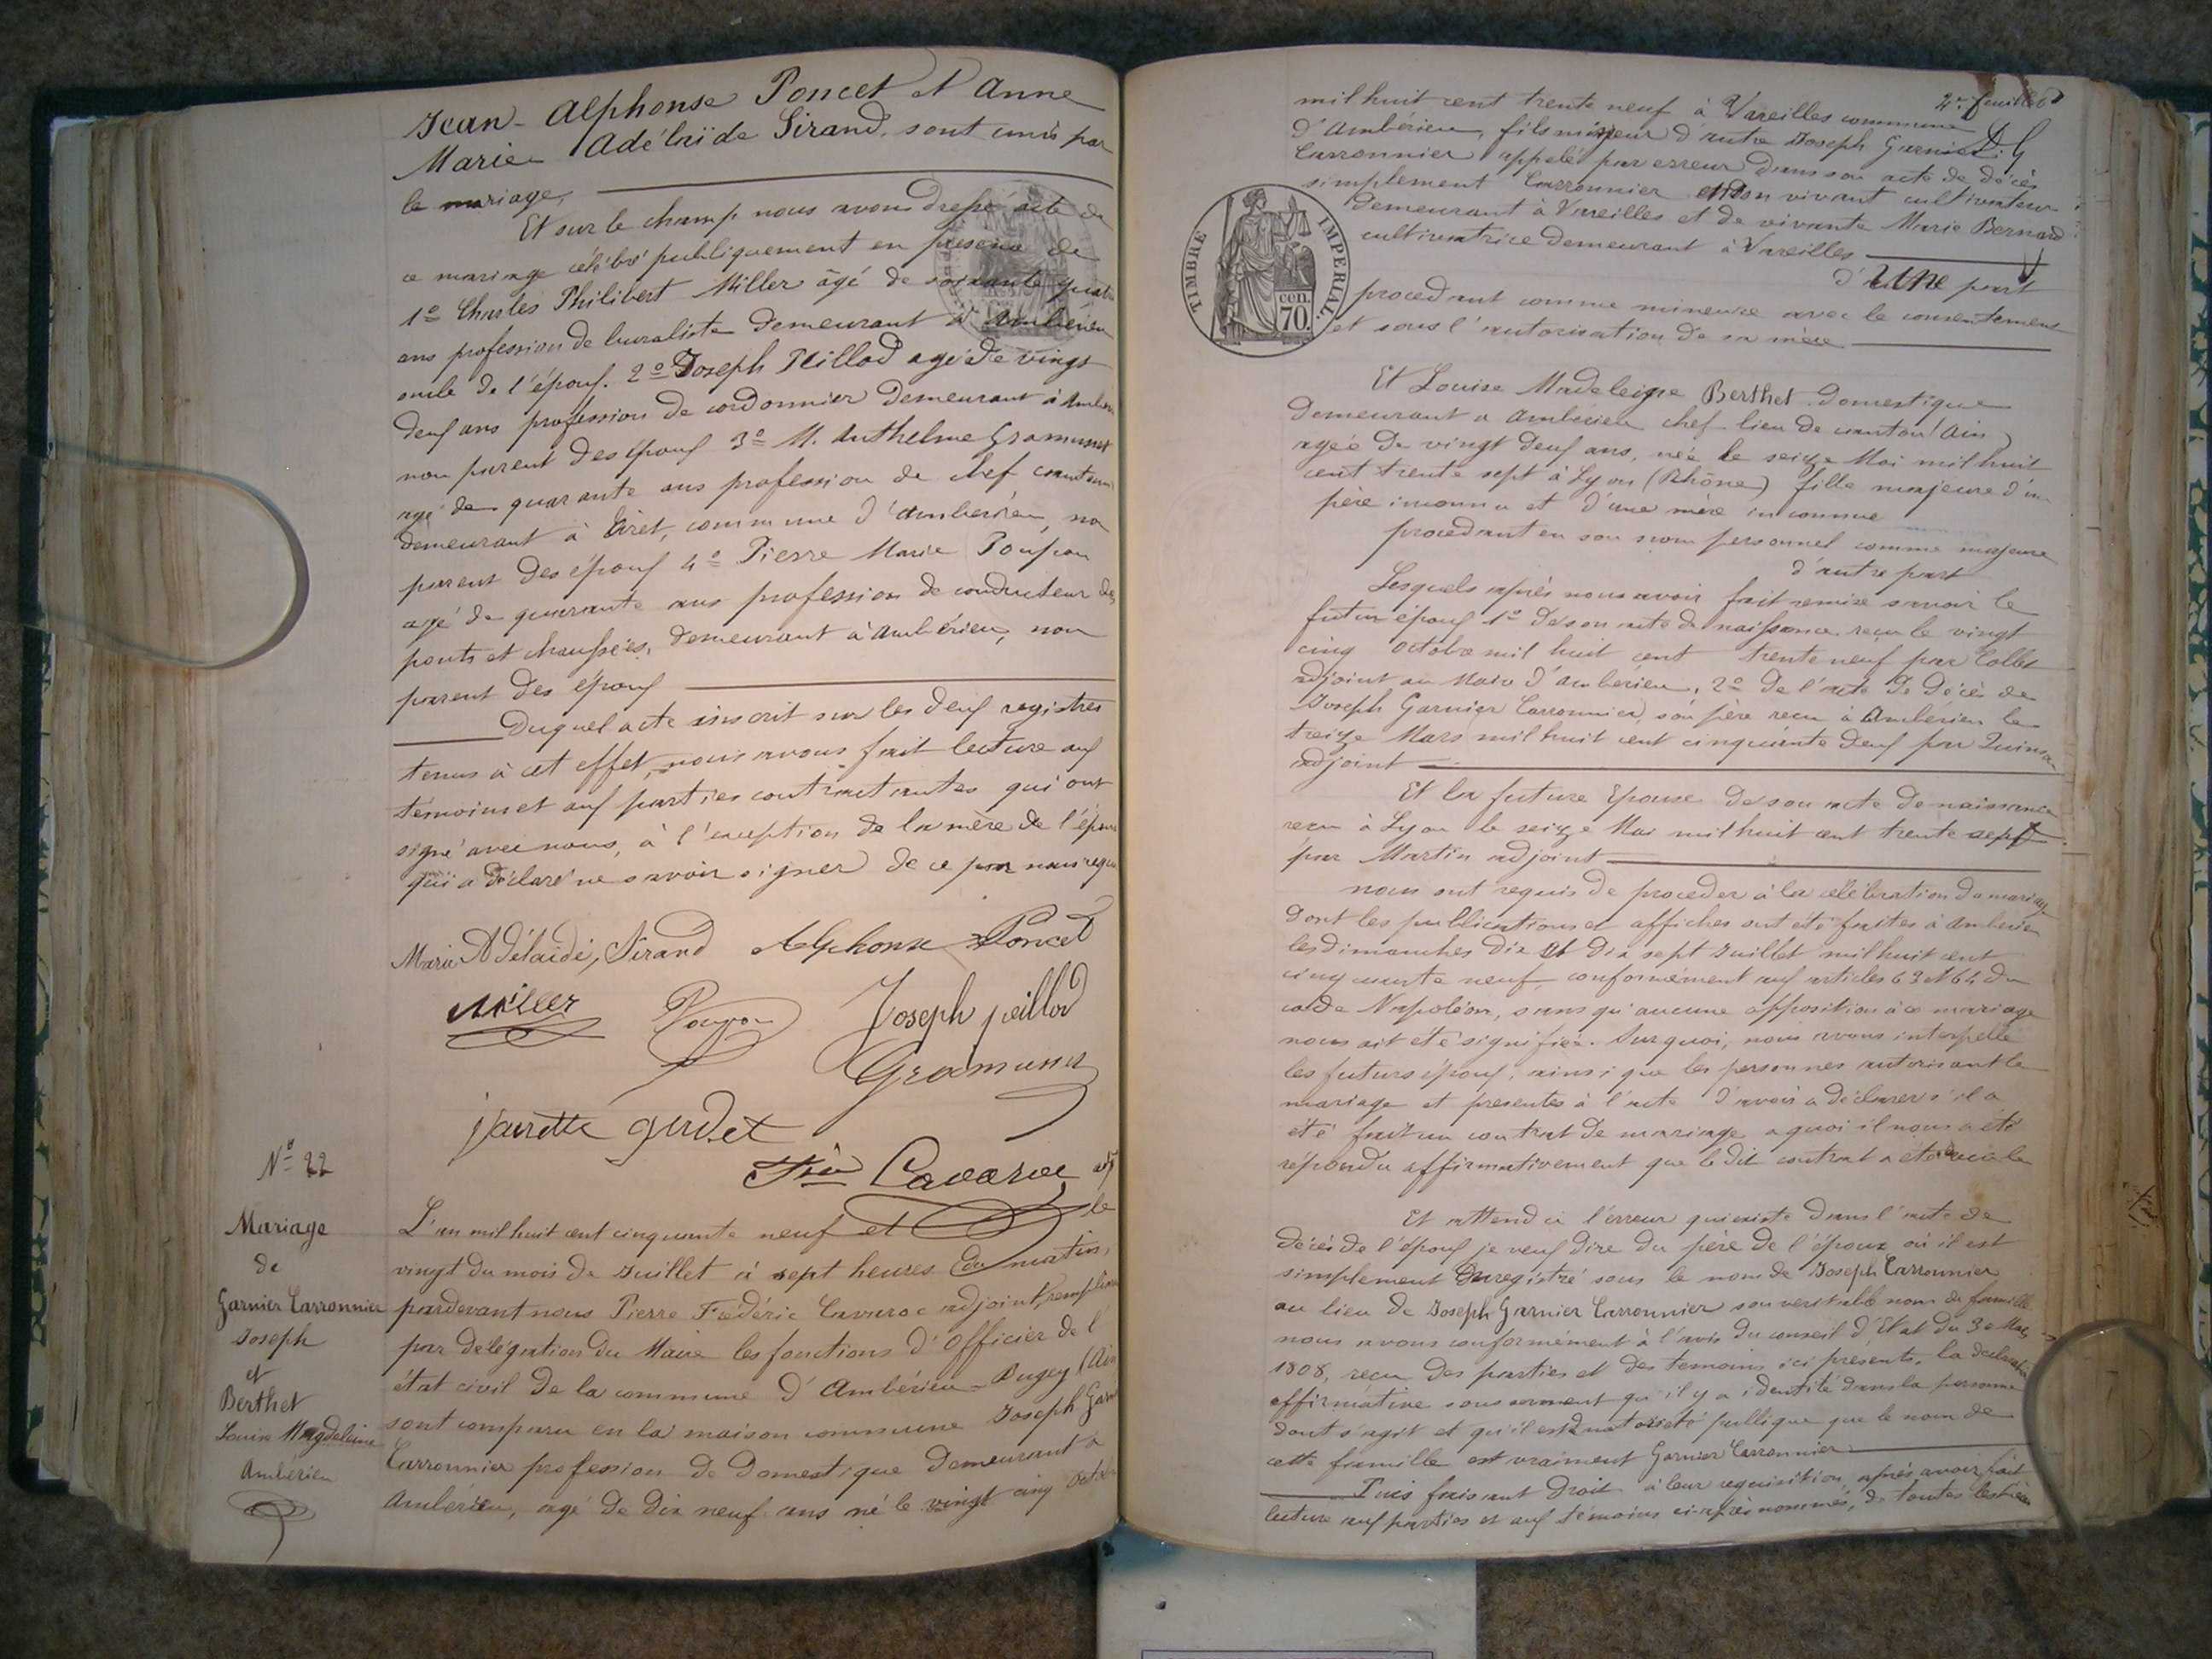 Jean-Alphonse Poncet et Anne
Marie Adélaïde Sirand, sont unis par
le mariage,
Et sur le champ nous avons dressé acte de
ce mariage célébré publiquement en présence de
1º Charles Philibert Miller âgé de soixante quatre
ans profession de buraliste demeurant à Ambérieu
oncle de l'épouse. 2º Joseph Peillod agé de vingt
deux ans profession de cordonnier demeurant à Ambérieu
non parent des époux 3º M. Anthelme Gramusset
agé de quarante ans profession de chef cantonnier
demeurant à Tiret, commune d'Ambérieu, non
parent des époux 4º Pierre Marie Poupon
agé de quarante ans profession de conducteur des
ponts et chaussées, demeurant à Ambérieu, non
parent des époux
Duquel acte inscrit sur les deux registres
tenus à cet effet, nous avons fait lecture aux
témoins et aux parties contractantes qui ont
signé avec nous, à l'exception de la mère de l'époux
qui a déclaré ne savoir signer de ce par nous requis
Marie Adélaïde, Sirand Alphonse Poncet
Miller Poupon Joseph peillod
Gramusset
Fric Cavaroc adj
Nº 22
Mariage
de
Garnier Carronnier
Joseph
et
Berthet
Louise Magdeleine
Ambérieu
L'an mil huit cent cinquante neuf et le
vingt du mois de Juillet à sept heures du matin,
pardevant nous Pierre Frédéric Cavaroc adjoint, remplissant
par délégation du Maire les fonctions d'Officier de l'
état civil de la commune d'Ambérieu-Bugey (Ain
sont comparu en la maison commune Joseph Garnier
Carronnier profession de domestique demeurant à
Ambérieu, agé de dix neuf ans né le vingt cinq octobre
2e feuillet
mil huit cent trente neuf à Vareilles commune
d'Ambérieu, fils mineur d'autre Joseph Garnier
Carronnier appelé par erreur dans son acte de décès
simplement Carronnier en son vivant cultivateur
demeurant à Vareilles et de vivante Marie Bernard
cultivatrice demeurant à Vareilles
d'une part
TIMBRE IMPERIAL
cen. 70.
procédant comme mineure avec le consentement
et sous l'autorisation de sa mère
Et Louise Madeleine Berthet domestique
demeurant a Ambérieu chef lieu de canton (Ain)
agée de vingt deux ans, née le seize Mai mil huit
cent trente sept à Lyon (Rhône) fille majeure d'un
père inconnu et d'une mère inconnue
procédant en son nom personnel comme majeure
d'autre part
Lesquels après nous avoir fait remise savoir le
futur époux 1º de son acte de naissance reçu le vingt
cinq octobre mil huit cent trente neuf par Collet
adjoint au Maire d'Ambérieu, 2º de l'acte de décès de
Joseph Garnier Carronnier, son père reçu à Ambérieu le
treize Mars mil huit cent cinquante deux par Quinson
adjoint
Et la future épouse de son acte de naissance
reçu à Lyon le seize Mai mil huit cent trente sept
par Martin adjoint
nous ont requis de procéder à la célébration du mariage
dont les publications et affiches ont été faites à Ambérieu
les dimanches dix et dix sept Juillet mil huit cent
cinquante neuf conformément aux articles 63 et 64 du
code Napoléon, sans qu'aucune opposition à ce mariage
nous ait été signifiée. Sur quoi, nous avons interpellé
les futurs époux, ainsi que les personnes autorisant le
mariage et présentes à l'acte d'avoir à déclarer s'il a
été fait un contrat de mariage a quoi il nous a été
répondu affirmativement que le dit contrat a été
Et attendu l'erreur qui existe dans l'acte de
décès de l'époux je veux dire du père de l'époux où il est
simplement enregistré sous le nom de Joseph Carronnier
au lieu de Joseph Garnier Carronnier son véritable nom de famille
nous avons conformément à l'avis du conseil d'Etat du 30 Mars
1808, reçu des parties et des témoins ici présents, la déclaration
affirmative sous serment qu'il y a identité dans la personne
dont s'agit et qu'il est de notoriété publique que le nom de
cette famille est vraiment Garnier Carronnier
Puis faisant droit à leur requisition, après avoir fait
lecture aux parties et aux témoins ci-après nommés, de toutes les pièces